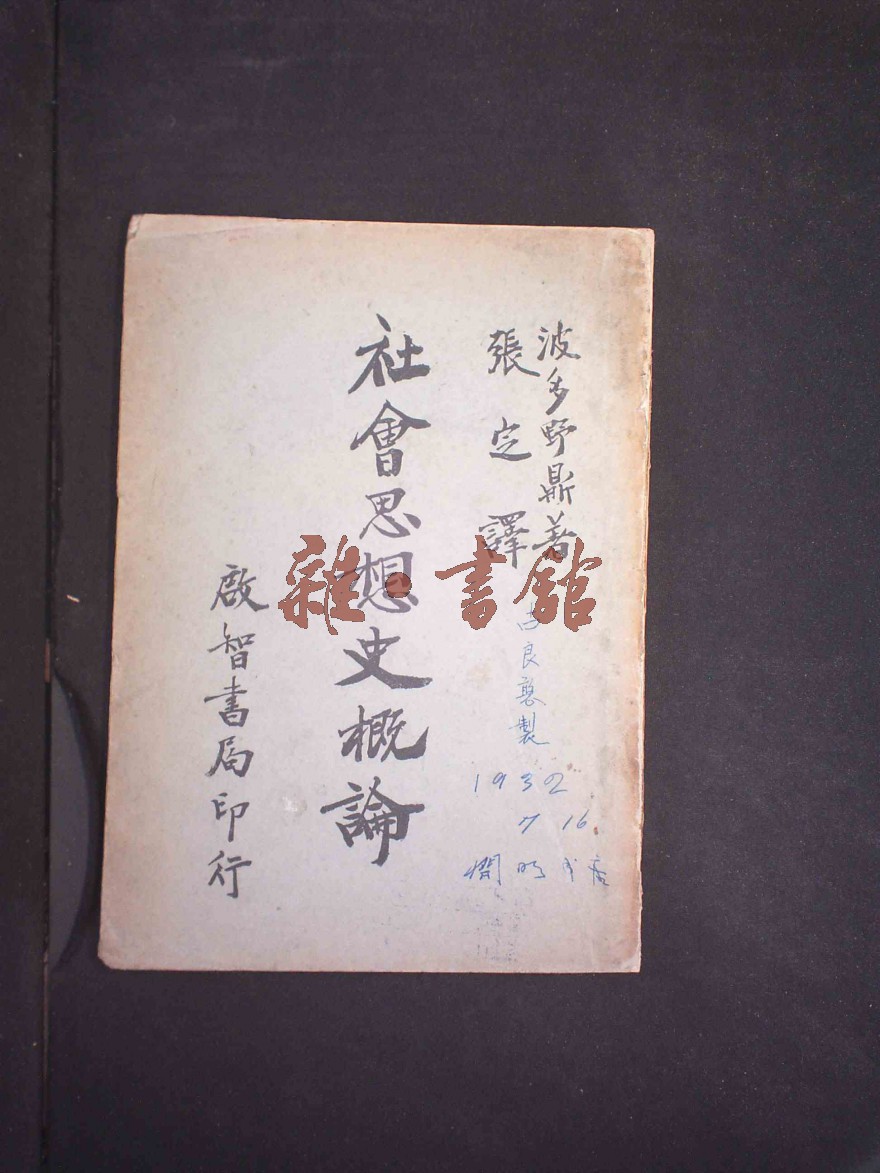 波多野鼎著
張定譯
社會思想史概論
啟智書局印行
良 製
1932
7 16
雜·書館